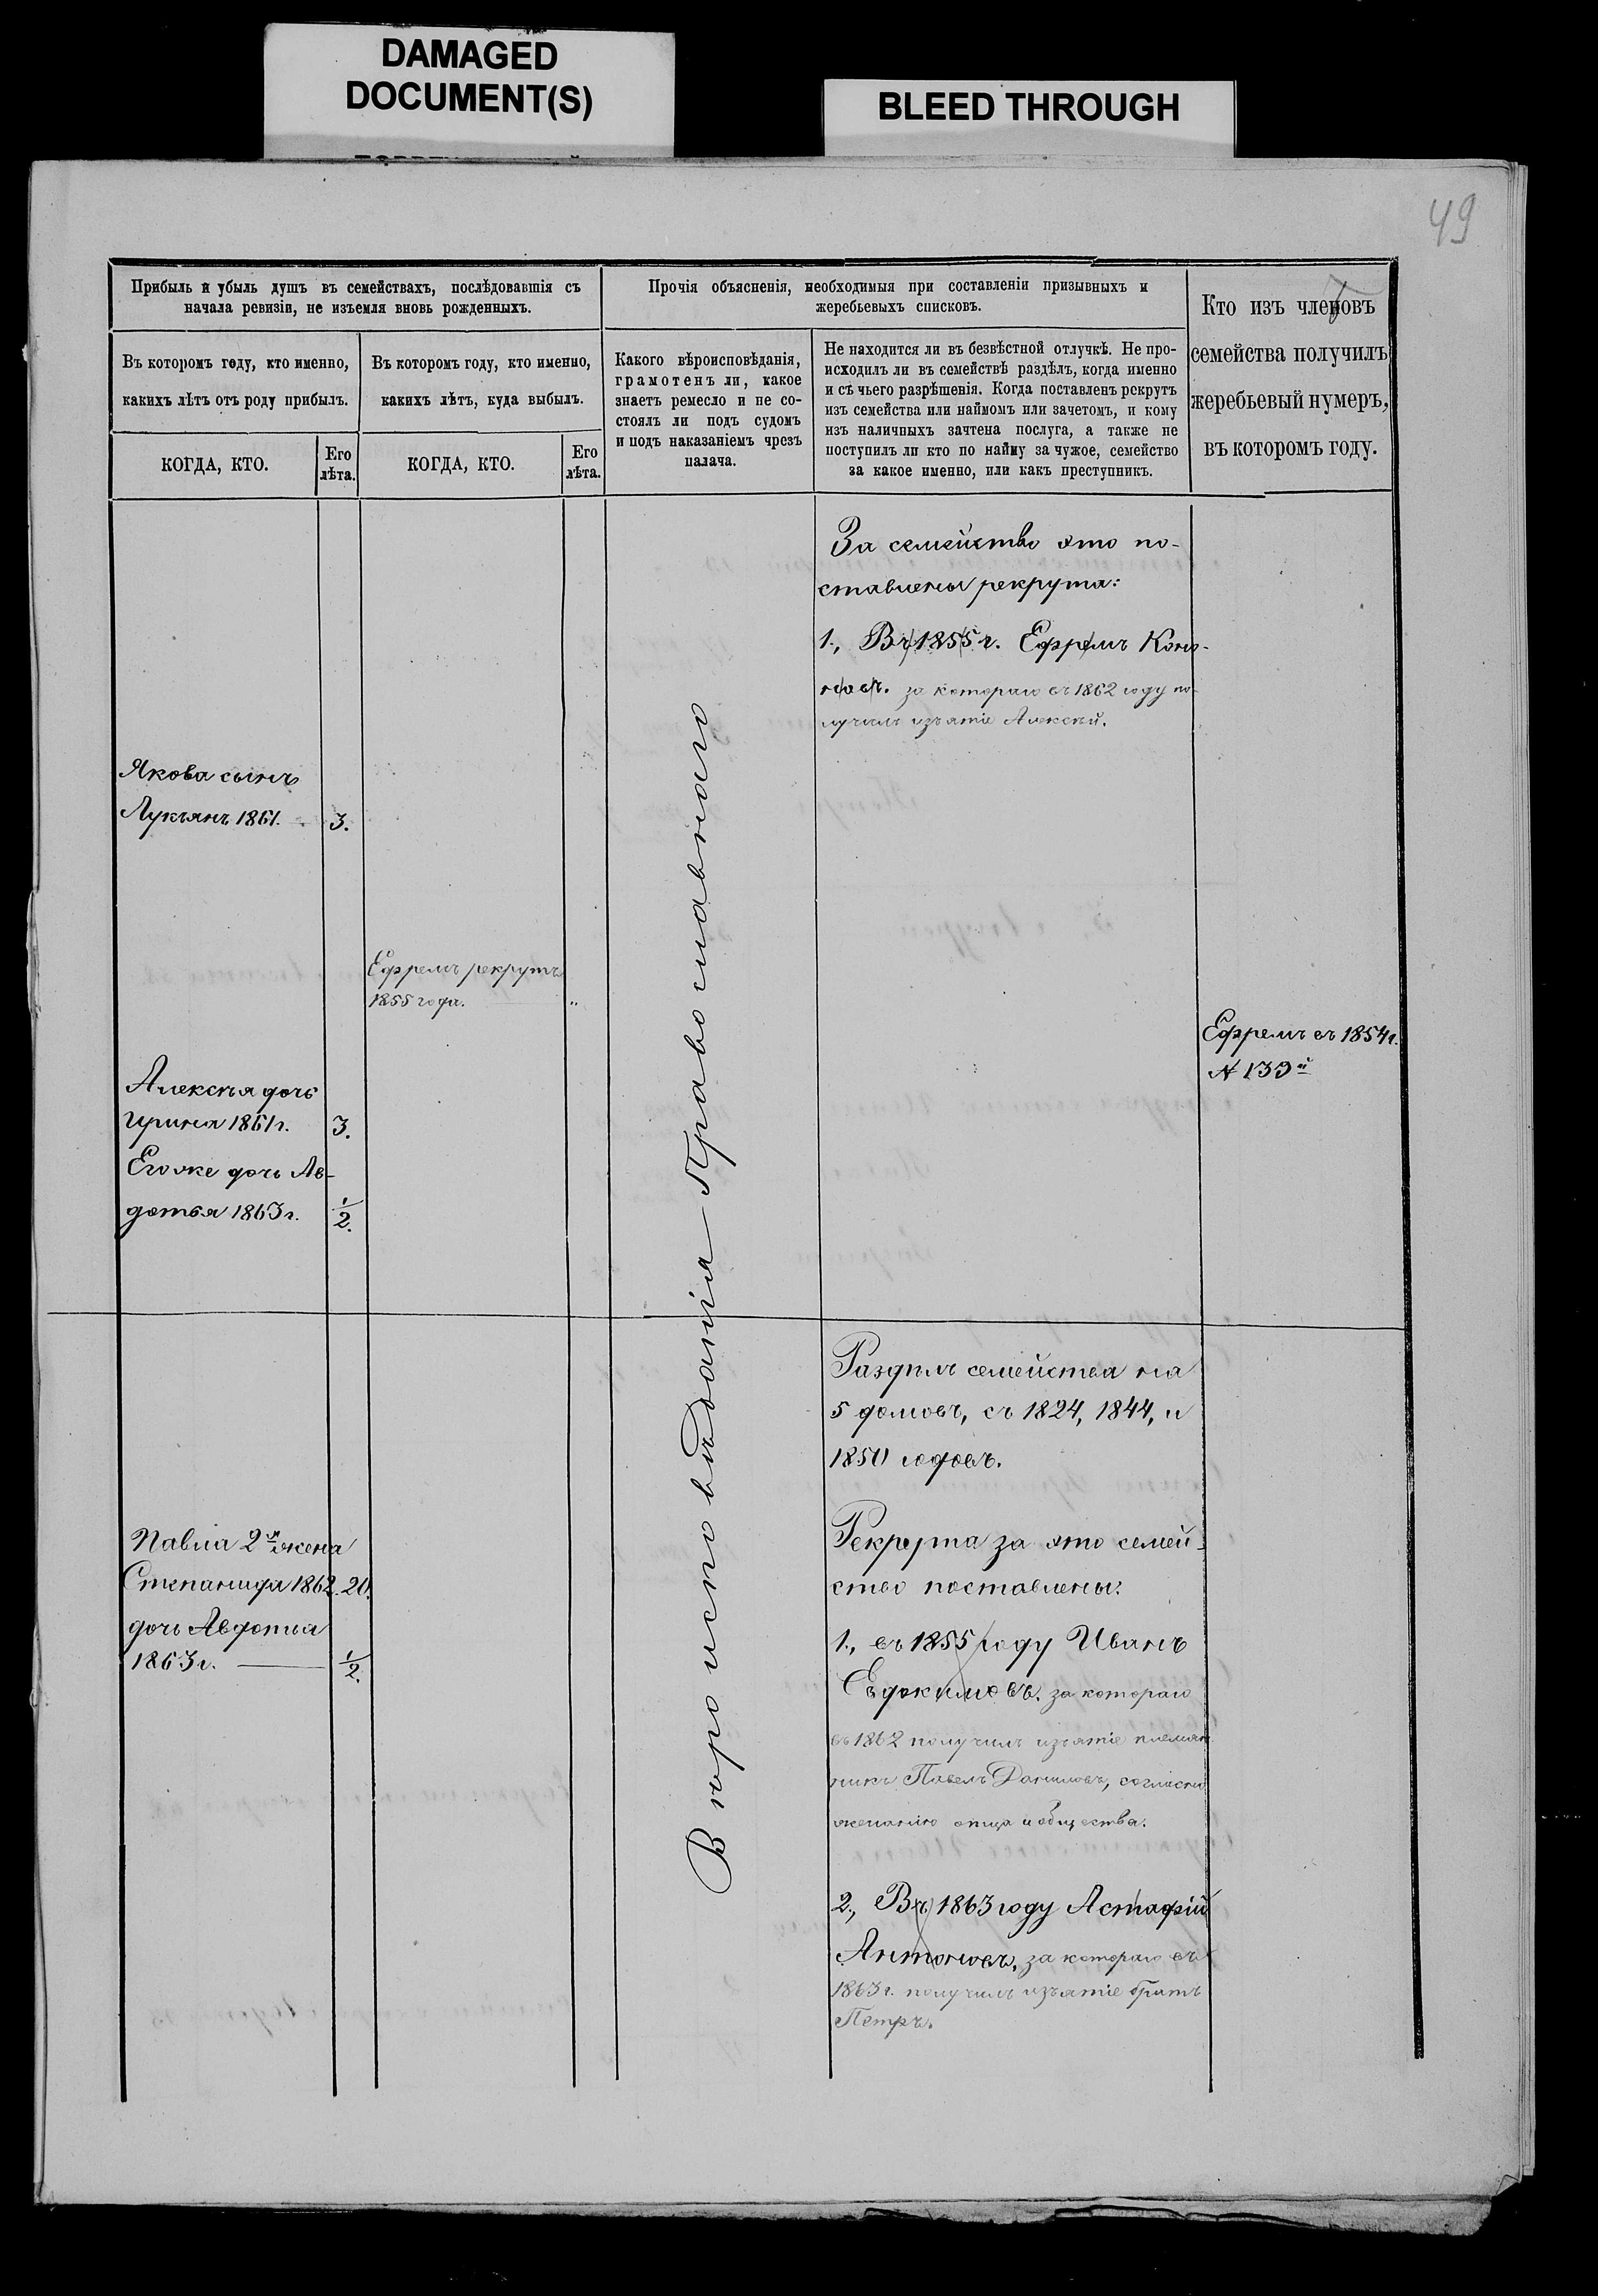 DAMAGED
DOCUMENT(S)
BLEED THROUGH
49
Прибыль и убыль душъ въ семействахъ, послѣдовавшія съ
начала ревизіи, не изъемля вновь рожденныхъ.
Въ которомъ году, кто именно,
какихъ лѣтъ отъ роду прибылъ.
КОГДА, КТО.
Его
лѣта.
Въ которомъ году, кто именно,
какихъ лѣтъ, куда выбылъ.
КОГДА, КТО.
Его
лѣта.
Прочія объясненія, необходимыя при составленіи призывныхъ и
жеребьевыхъ списковъ.
Какого вѣроисповѣданія,
грамотенъ ли, какое
знаетъ ремесло и не со-
стоялъ ли подъ судомъ
и подъ наказаніемъ чрезъ
палача.
Не находится ли въ безвѣстной отлучкѣ. Не про-
исходилъ ли въ семействѣ раздѣлъ, когда именно
и съ чьего разрѣшенія. Когда поставленъ рекрутъ
изъ семейства или наймомъ или зачетомъ, и кому
изъ наличныхъ зачтена послуга, а также не
поступилъ ли кто по найму за чужое, семейство
за какое именно, или какъ преступникъ.
Кто изъ членовъ
семейства получилъ
жеребьевый нумеръ,
въ которомъ году.
За семейство это по-
ставлены рекрута:
1., Въ 1855 г. Ефремъ Коно-
новъ. за котораго въ 1862 году по-
лучилъ изъятіе Алексѣй.
Якова сынъ
Лукъянъ 1861. 3.
Ефремъ рекрутъ
1855 года. "
Ефремъ въ 1854 г.
№ 133й
Алексѣя дочь
Ирина 1861 г. 3.
Его же дочь Ав-
дотья 1863 г. 1/2.
Вѣроисповѣданія Православнаго
Раздѣлъ семейства на
5 домовъ, съ 1824, 1844, и
1850 годовъ.
Рекрута за это семей-
ство поставлены:
1., въ 1855 году Иванъ
Евдокимовъ. за котораго
въ 1862 получилъ изъятіе племян-
никъ Павелъ Даниловъ, согласно
желанію отца и общества.
2., Въ 1863 году Астафій
Антоновъ, за котораго въ
1863 г. получилъ изъятіе братъ
Петръ.
Павла 2я жена
Степанида 1862. 20.
дочь Авдотья
1863 г. 1/2.